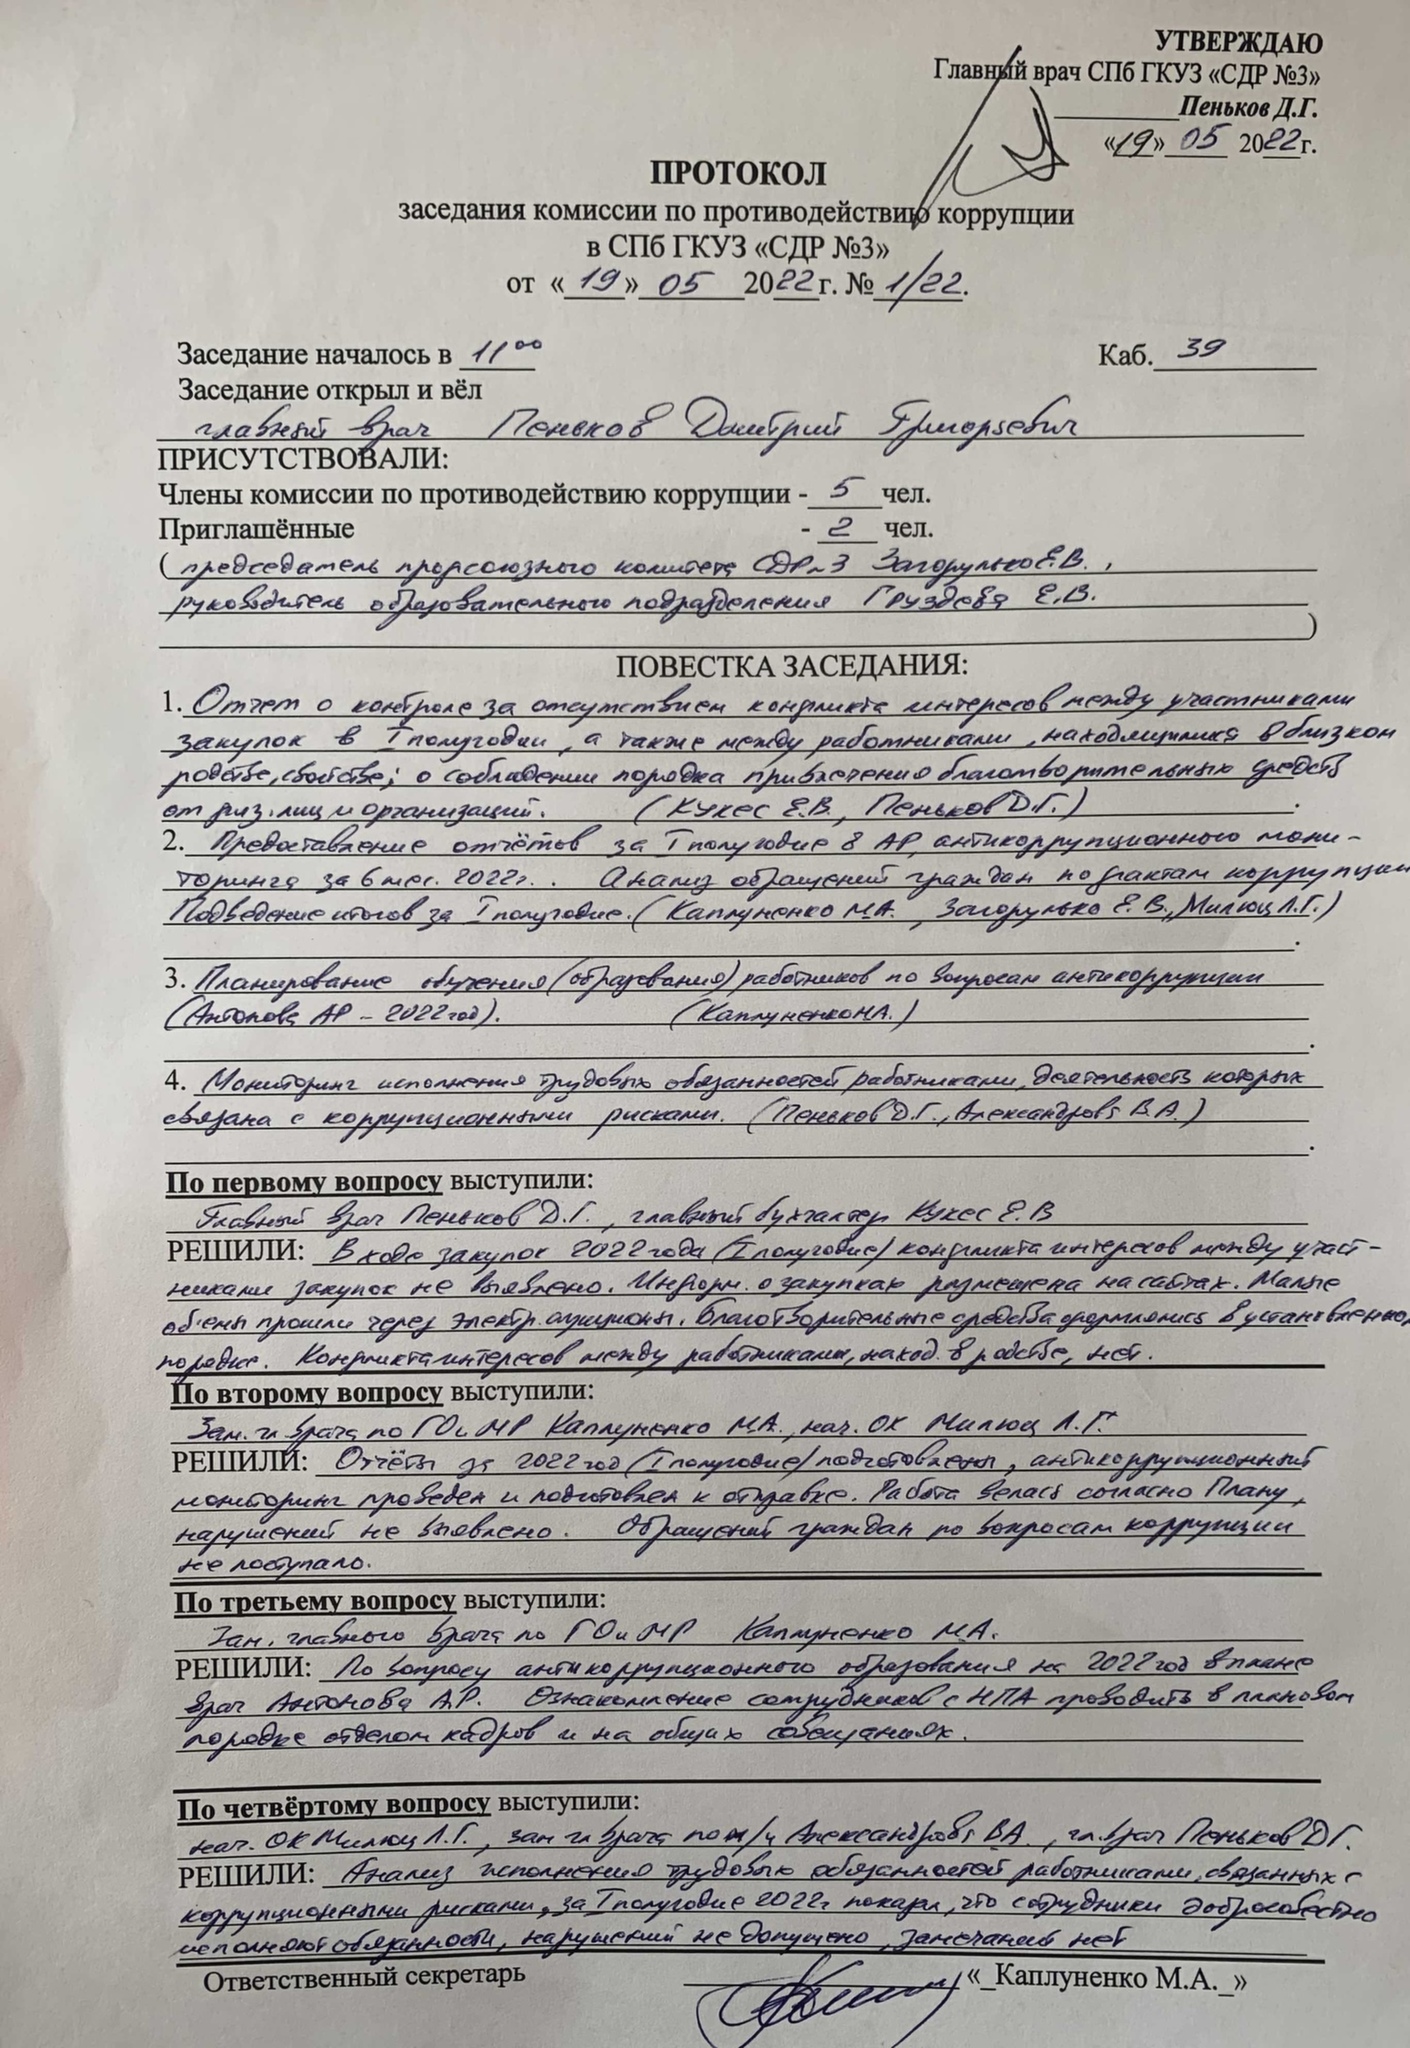 УТВЕРЖДАЮ
Главный врач СПб ГКУЗ «СДР №3»
Пеньков Д.Г.
«19» 05 2022г.
ПРОТОКОЛ
заседания комиссии по противодействию коррупции
в СПб ГКУЗ «СДР №3»
от «19» 05 2022г. № 1/22.
Заседание началось в 11⁰⁰ Каб. 39
Заседание открыл и вёл
главный врач Пеньков Дмитрий Григорьевич
ПРИСУТСТВОВАЛИ:
Члены комиссии по противодействию коррупции - 5 чел.
Приглашённые - 2 чел.
( председатель профсоюзного комитета СДР №3 Загорулько Е.В.,
руководитель образовательного подразделения Груздева Е.В.
)
ПОВЕСТКА ЗАСЕДАНИЯ:
1. Отчет о контроле за отсутствием конфликта интересов между участниками
закупок в I полугодии, а также между работниками, находящимися в близком
родстве, свойстве; о соблюдении порядка привлечения благотворительных средств
от физ. лиц и организаций. (Кукес Е.В., Пеньков Д.Г.)
2. Предоставление отчётов за I полугодие в АР, антикоррупционного мони-
торинга за 6 мес. 2022г.. Анализ обращений граждан по фактам коррупции
Подведение итогов за I полугодие. (Каплуненко М.А., Загорулько Е.В., Милюц Л.Г.)
3. Планирование обучения (образования) работников по вопросам антикоррупции
(Антонова АР – 2022 год). (Каплуненко М.А.)
4. Мониторинг исполнения трудовых обязанностей работниками, деятельность которых
связана с коррупционными рисками. (Пеньков Д.Г., Александрова В.А.)
По первому вопросу выступили:
Главный врач Пеньков Д.Г., главный бухгалтер Кукес Е.В
РЕШИЛИ: В ходе закупок 2022 года (I полугодие) конфликта интересов между участ-
никами закупок не выявлено. Информ. о закупках размещена на сайтах. Малые
объёмы прошли через электр. аукционы. Благотворительные средства оформлялись в установленном
порядке. Конфликта интересов между работниками, наход. в родстве, нет.
По второму вопросу выступили:
Зам. гл. врача по ГО и МР Каплуненко М.А., нач. ОК Милюц Л.Г.
РЕШИЛИ: Отчёты за 2022 год (I полугодие) подготовлены, антикоррупционный
мониторинг проведен и подготовлен к отправке. Работа велась согласно Плану,
нарушений не выявлено. Обращений граждан по вопросам коррупции
не поступало.
По третьему вопросу выступили:
Зам. главного врача по ГО и МР Каплуненко М.А.
РЕШИЛИ: По вопросу антикоррупционного образования на 2022 год в плане
врач Антонова А.Р. Ознакомление сотрудников с НПА проводить в плановом
порядке отделом кадров и на общих совещаниях.
По четвёртому вопросу выступили:
нач. ОК Милюц Л.Г., зам гл врача по м/ч Александрова В.А., гл. врач Пеньков Д.Г.
РЕШИЛИ: Анализ исполнения трудовых обязанностей работниками, связанных с
коррупционными рисками, за I полугодие 2022г показал, что сотрудники добросовестно
исполняют обязанности, нарушений не допущено, замечаний нет
Ответственный секретарь «_Каплуненко М.А._»